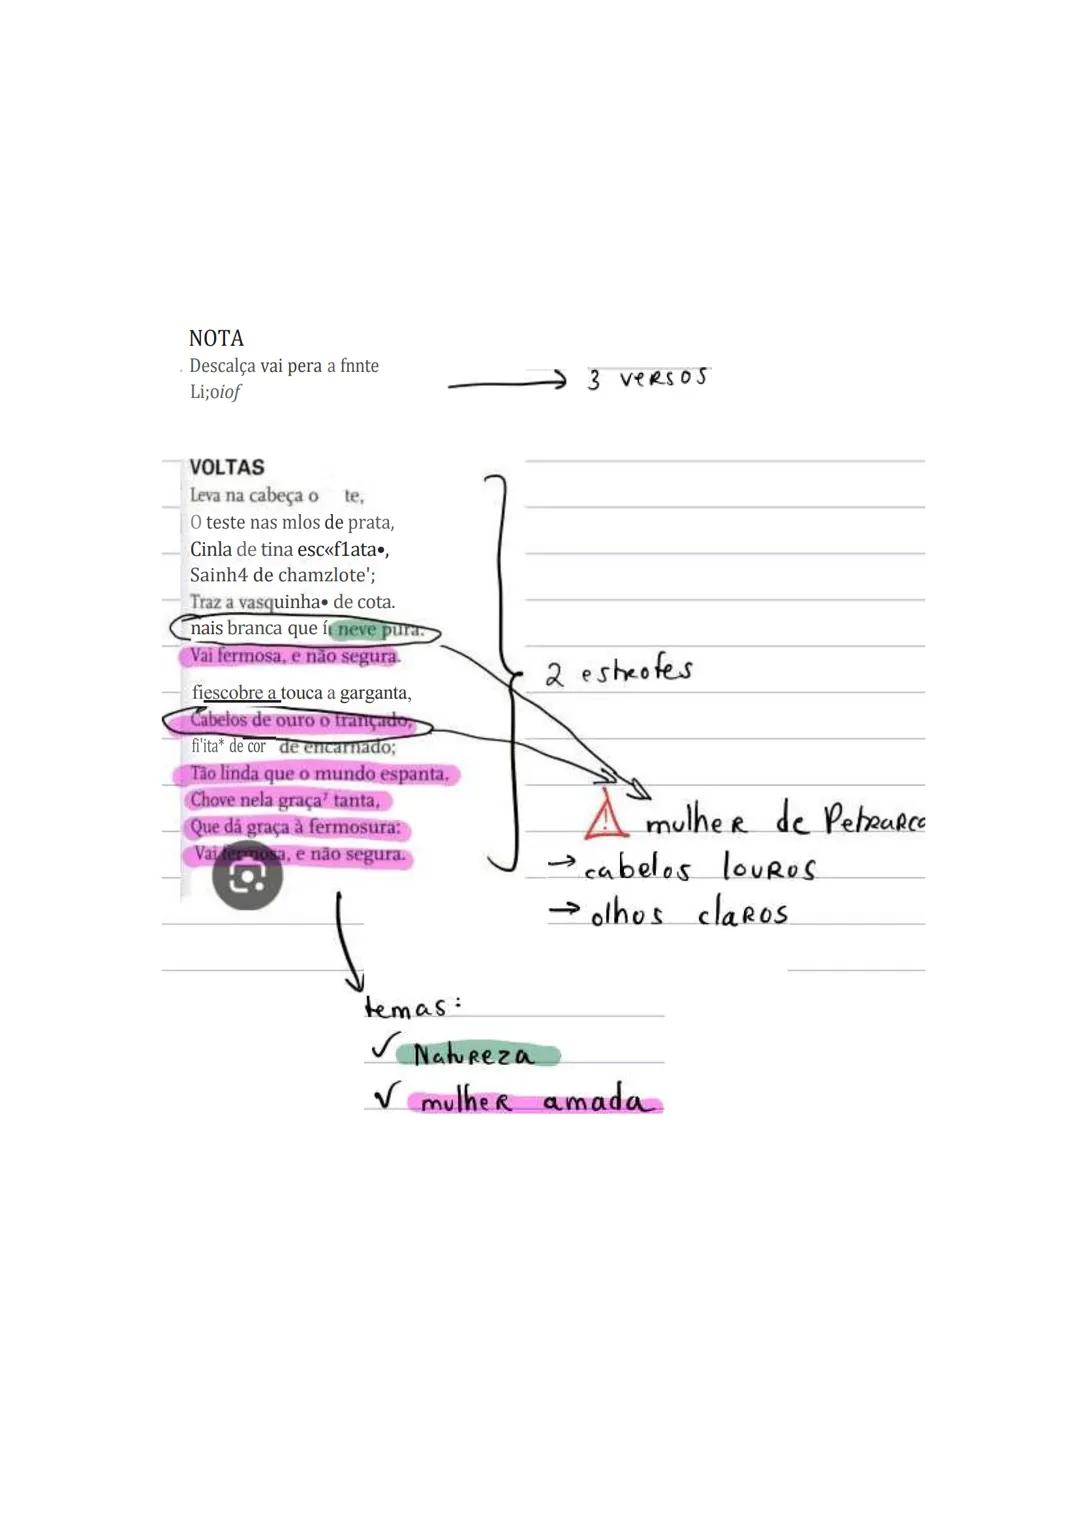 NOTA
Descalça vai pera a fnnte
Li;oiof
3 versos
VOLTAS
Leva na cabeça o te,
O teste nas mlos de prata,
Cinla de tina esc«f1ata•,
Sainh4 de chamzlote';
Traz a vasquinha• de cota.
nais branca que í neve pura.
Vai fermosa, e não segura.
2 estrofes
fiescobre a touca a garganta,
Cabelos de ouro o trançado,
fi'ita* de cor de encarnado;
Tão linda que o mundo espanta.
Chove nela graça⁷ tanta,
Que dá graça à fermosura:
Vai fermosa, e não segura.
mulher de Petrarca
→ cabelos louros
→ olhos claros
temas:
✓ Natureza
✓ mulher amada